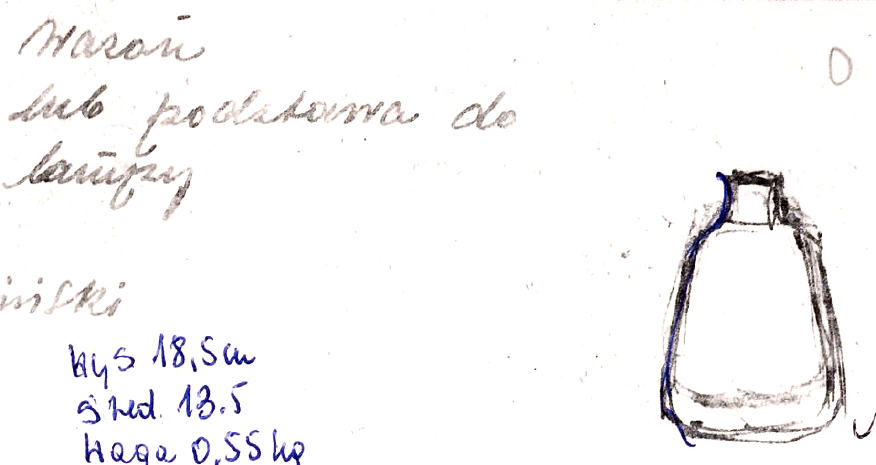 Wazon
lub podstawa do
lampy
iński
wys 18,5cm
śred. 13.5
Waga 0,55kg